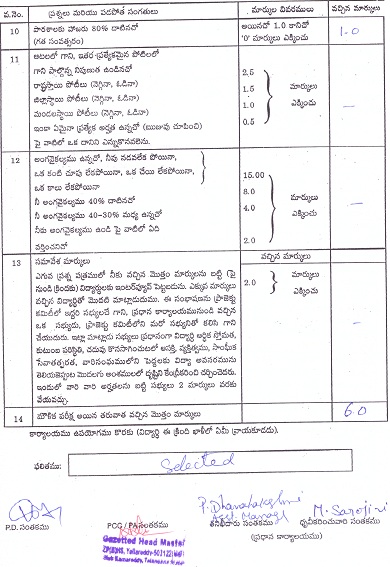 వ.నెం. ప్రశ్నలు మరియు పడపోత సంగతులు మార్కుల వివరములు వచ్చిన మార్కులు
10 పాఠశాలకు హాజరు 80% దాటినచో అయినచో 1.0 కానిచో 1.0
(గత సంవత్సరం) '0' మార్కులు ఎక్కించు
11 ఆటలలో గాని, ఇతర ప్రత్యేకమైన పోటీలలో
గాని పాల్గొన్న నిపుణత ఉండినచో 2.5
రాష్ట్రస్థాయి పోటీలు (నెగ్గినా, ఓడినా) 1.5 మార్కులు
జిల్లాస్థాయి పోటీలు (నెగ్గినా, ఓడినా) 1.0 ఎక్కించు –
మండలస్థాయి పోటీలు (నెగ్గినా, ఓడినా) 0.5
ఇంకా ఏమైనా ప్రత్యేక అర్హత ఉన్నచో (ఋజువు చూపించి)
పై వాటిలో ఒక దానిని ఎన్నుకొనవలెను.
12 అంగవైకల్యము ఉన్నచో, నీవు నడవలేక పోయినా,
ఒక కంటి చూపు లేకపోయినా, ఒక చేయి లేకపోయినా 15.00
ఒక కాలు లేకపోయినా 8.0 మార్కులు
నీ అంగవైకల్యము 40% దాటినచో 4.0 ఎక్కించు –
నీ అంగవైకల్యము 40-30% మధ్య ఉన్నచో
నీకు అంగవైకల్యము ఉండి పై వాటిలో ఏది 2.0
వర్తించనిచో
13 సమావేశ మార్కులు వచ్చిన మార్కులు
ఎగువ ప్రశ్న పత్రములో నీకు వచ్చిన మొత్తం మార్కులను బట్టి (పై 2.0 మార్కులు
నుండి క్రిందకు) విద్యార్థులకు ఇంటర్వ్యూకి పెట్టబడును. ఎక్కువ మార్కులు ఎక్కించు
వచ్చిన విద్యార్థితో మొదటి మాట్లాడుదుము. ఈ సంభాషణను ప్రాజెక్టు –
కమిటిలో ఇద్దరి సభ్యులచే గాని, ప్రధాన కార్యాలయమునుండి వచ్చిన
ఒక సభ్యుడు, ప్రాజెక్టు కమిటీలోని మరో సభ్యునితో కలిసి గాని
చేయుదురు. ఇట్లా మాట్లాడు సభ్యులు ప్రధానంగా విద్యార్థి ఆర్థిక స్తోమత,
కుటుంబ పరిస్థితి, చదువు కొనసాగించుటలో ఆసక్తి, వ్యక్తిత్వము, సాంఘీక
సేవాతత్పరత,
ఇందులో వారి వారి అర్హతలను బట్టి సభ్యులు 2 మార్కుల వరకు
వేయవచ్చు.
14 మౌళిక పరీక్ష అయిన తరువాత వచ్చిన మొత్తం మార్కులు 6.0
కార్యాలయము ఉపయోగము కొరకు (విద్యార్థి ఈ క్రింది ఖాళీలో ఏమీ వ్రాయకూడదు).
ఫలితము: Selected
P. Dhanalakshmi
Asst. Manager M. Sarojini
P.D. సంతకము PCG / PA సంతకము తనిఖీదారు సంతకము ధృవీకరించువారి సంతకము
(ప్రధాన కార్యాలయము)
Gazetted Head Master